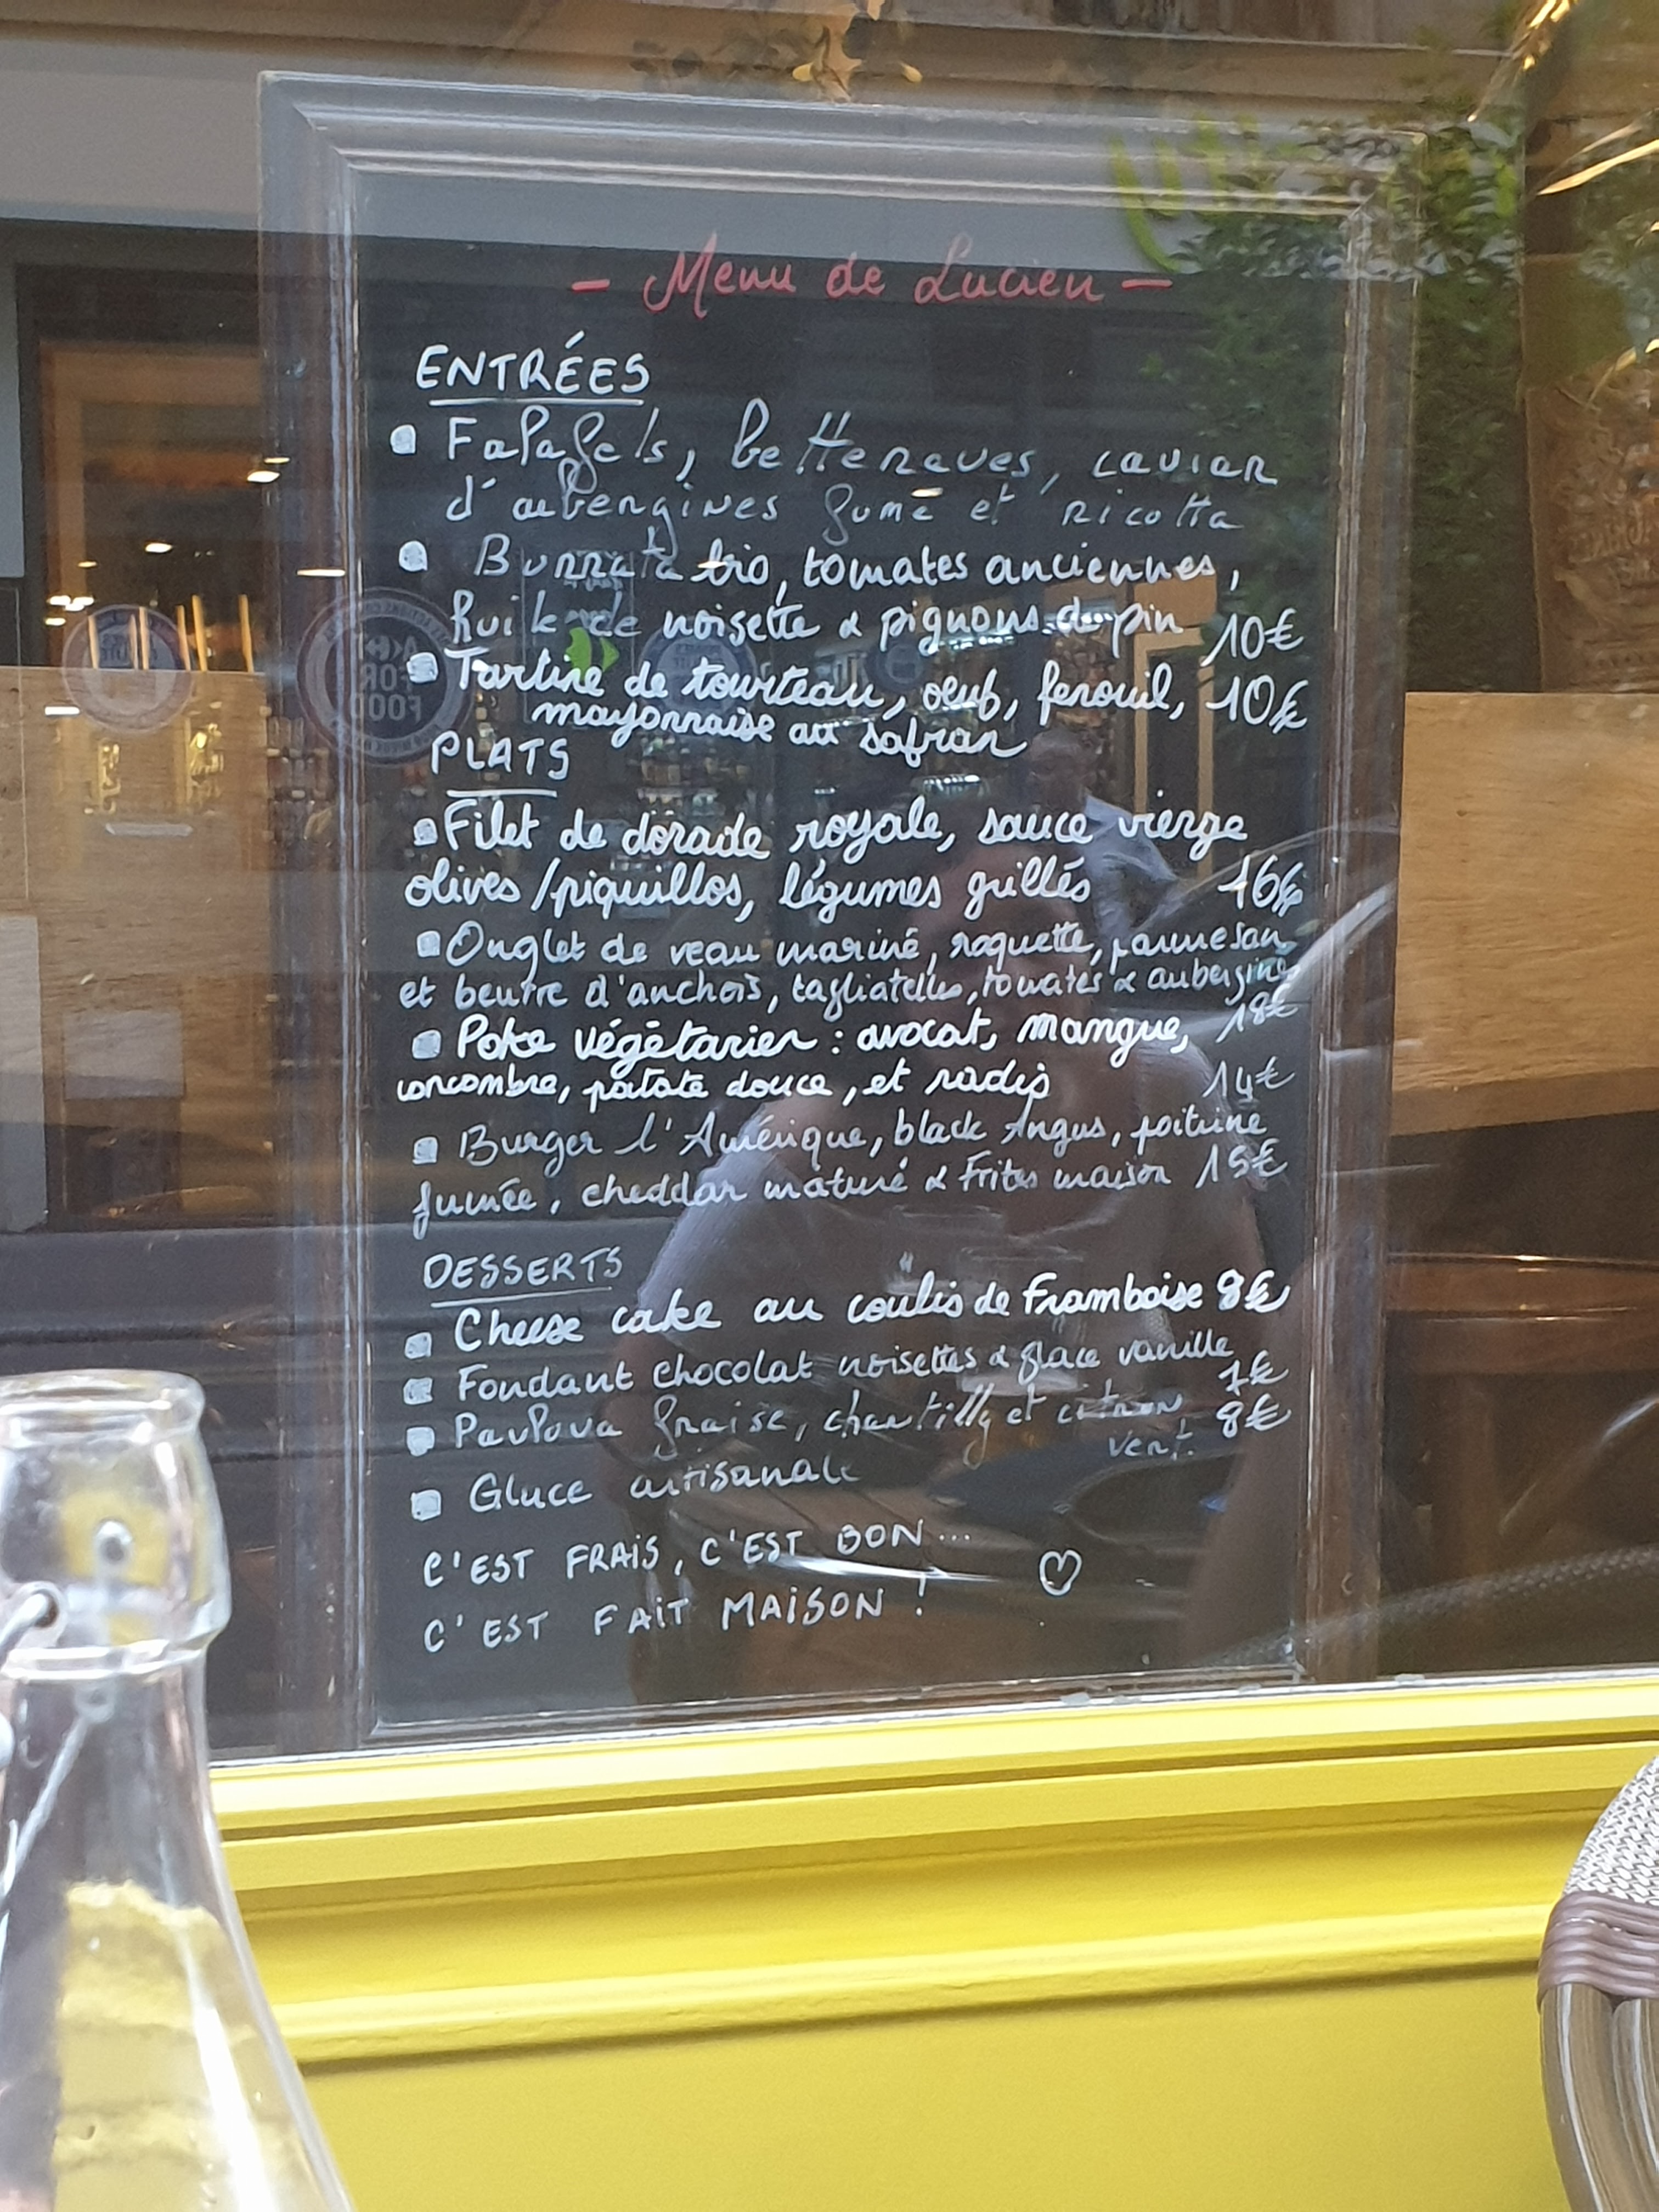 - Menu de Lucien -
ENTRÉES
Falafels, betteraves, caviar
d'aubergines fumé et ricotta
Burrata bio, tomates anciennes,
huile de noisette & pignons de pin 10€
Tartine de tourteau, oeuf, fenouil, 10€
mayonnaise au safran
PLATS
Filet de dorade royale, sauce vierge
olives/piquillos, légumes grillés 16€
Onglet de veau mariné, roquette, parmesan
et beurre d'anchois, tagliatelles, tomates & aubergines
18€
Poke végétarien : avocat, mangue,
concombre, patate douce, et radis 14€
Burger l'Amérique, black Angus, poitrine
fumée, cheddar maturé & Frites maison 15€
DESSERTS
Cheese cake au coulis de Framboise 8€
Fondant chocolat noisettes & glace vanille
7€
Pavlova fraise, chantilly et citron 8€
vert.
Glace artisanale
C'EST FRAIS, C'EST BON...
C'EST FAIT MAISON !
FOR
FOOD